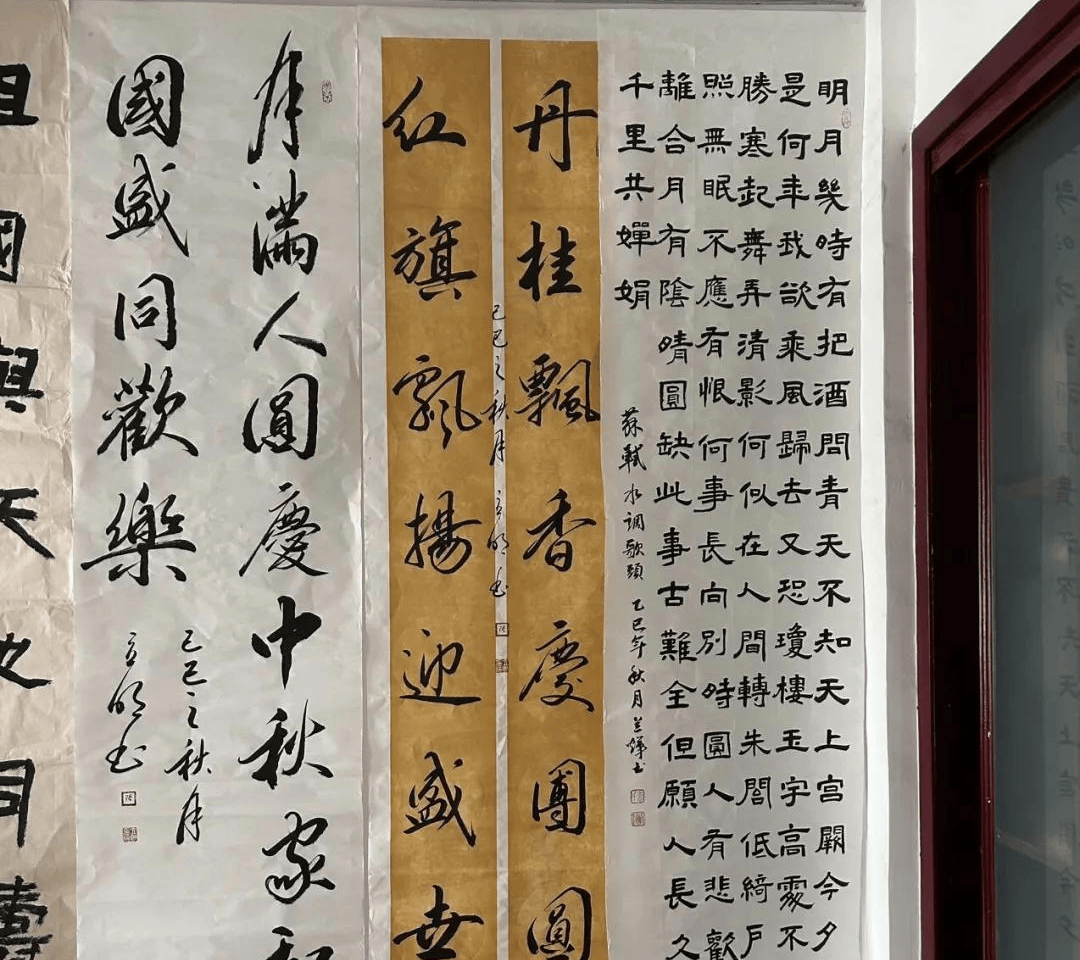 明月幾時有把酒問青天不知天上宮闕今夕
是何年我欲乘風歸去又恐瓊樓玉宇高處不
勝寒起舞弄清影何似在人間轉朱閣低綺戶
照無眠不應有恨何事長向別時圓人有悲歡
離合月有陰晴圓缺此事古難全但願人長久
千里共嬋娟
蘇軾水调歌頭 乙巳年秋月
丹桂飄香慶團圓
乙巳之秋月 立明书
红旗飄揚迎盛世
月滿人圓慶中秋家和
國盛同歡樂
乙巳之秋月
立明书
國與天地同壽